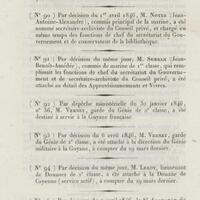 (N° 90) Par décision du 1er avril 1846, M. NOYER (Jean-
Antoine-Alexandre), commis principal de la marine, a été
nommé secrétaire-archiviste du Conseil privé, et chargé en
même temps des fonctions de chef du secrétariat du Gouver-
nement et de conservateur de la bibliothèque.
(N° 91) Par décision du même jour, M.
Benoît-Amédée), commis de marine de 1re classe, qui rem-
plissait les fonctions de chef du secrétariat du Gouverne-
ment et de secrétaire-archiviste du Conseil privé, a été
attaché au détail des Approvisionnements et Vivres.
(N° 92) Par dépêche ministérielle du 30 janvier 1846,
n° 36, M. VERNET, garde du Génie de 2e classe, a été
destiné à servir à la Guyane française.
(N° 93) Par décision du 6 avril 1846, M. VERNET, garde
du Génie de 2e classe, a été attaché à la direction du Génie
militaire de la Guyane, à compter du 19 mars dernier.
(N° 94) Par décision du même jour, M. LEROY, lieutenant
de Douanes de 2e classe, a été attaché à la Douane de
Cayenne (service actif), à compter du 19 mars dernier.